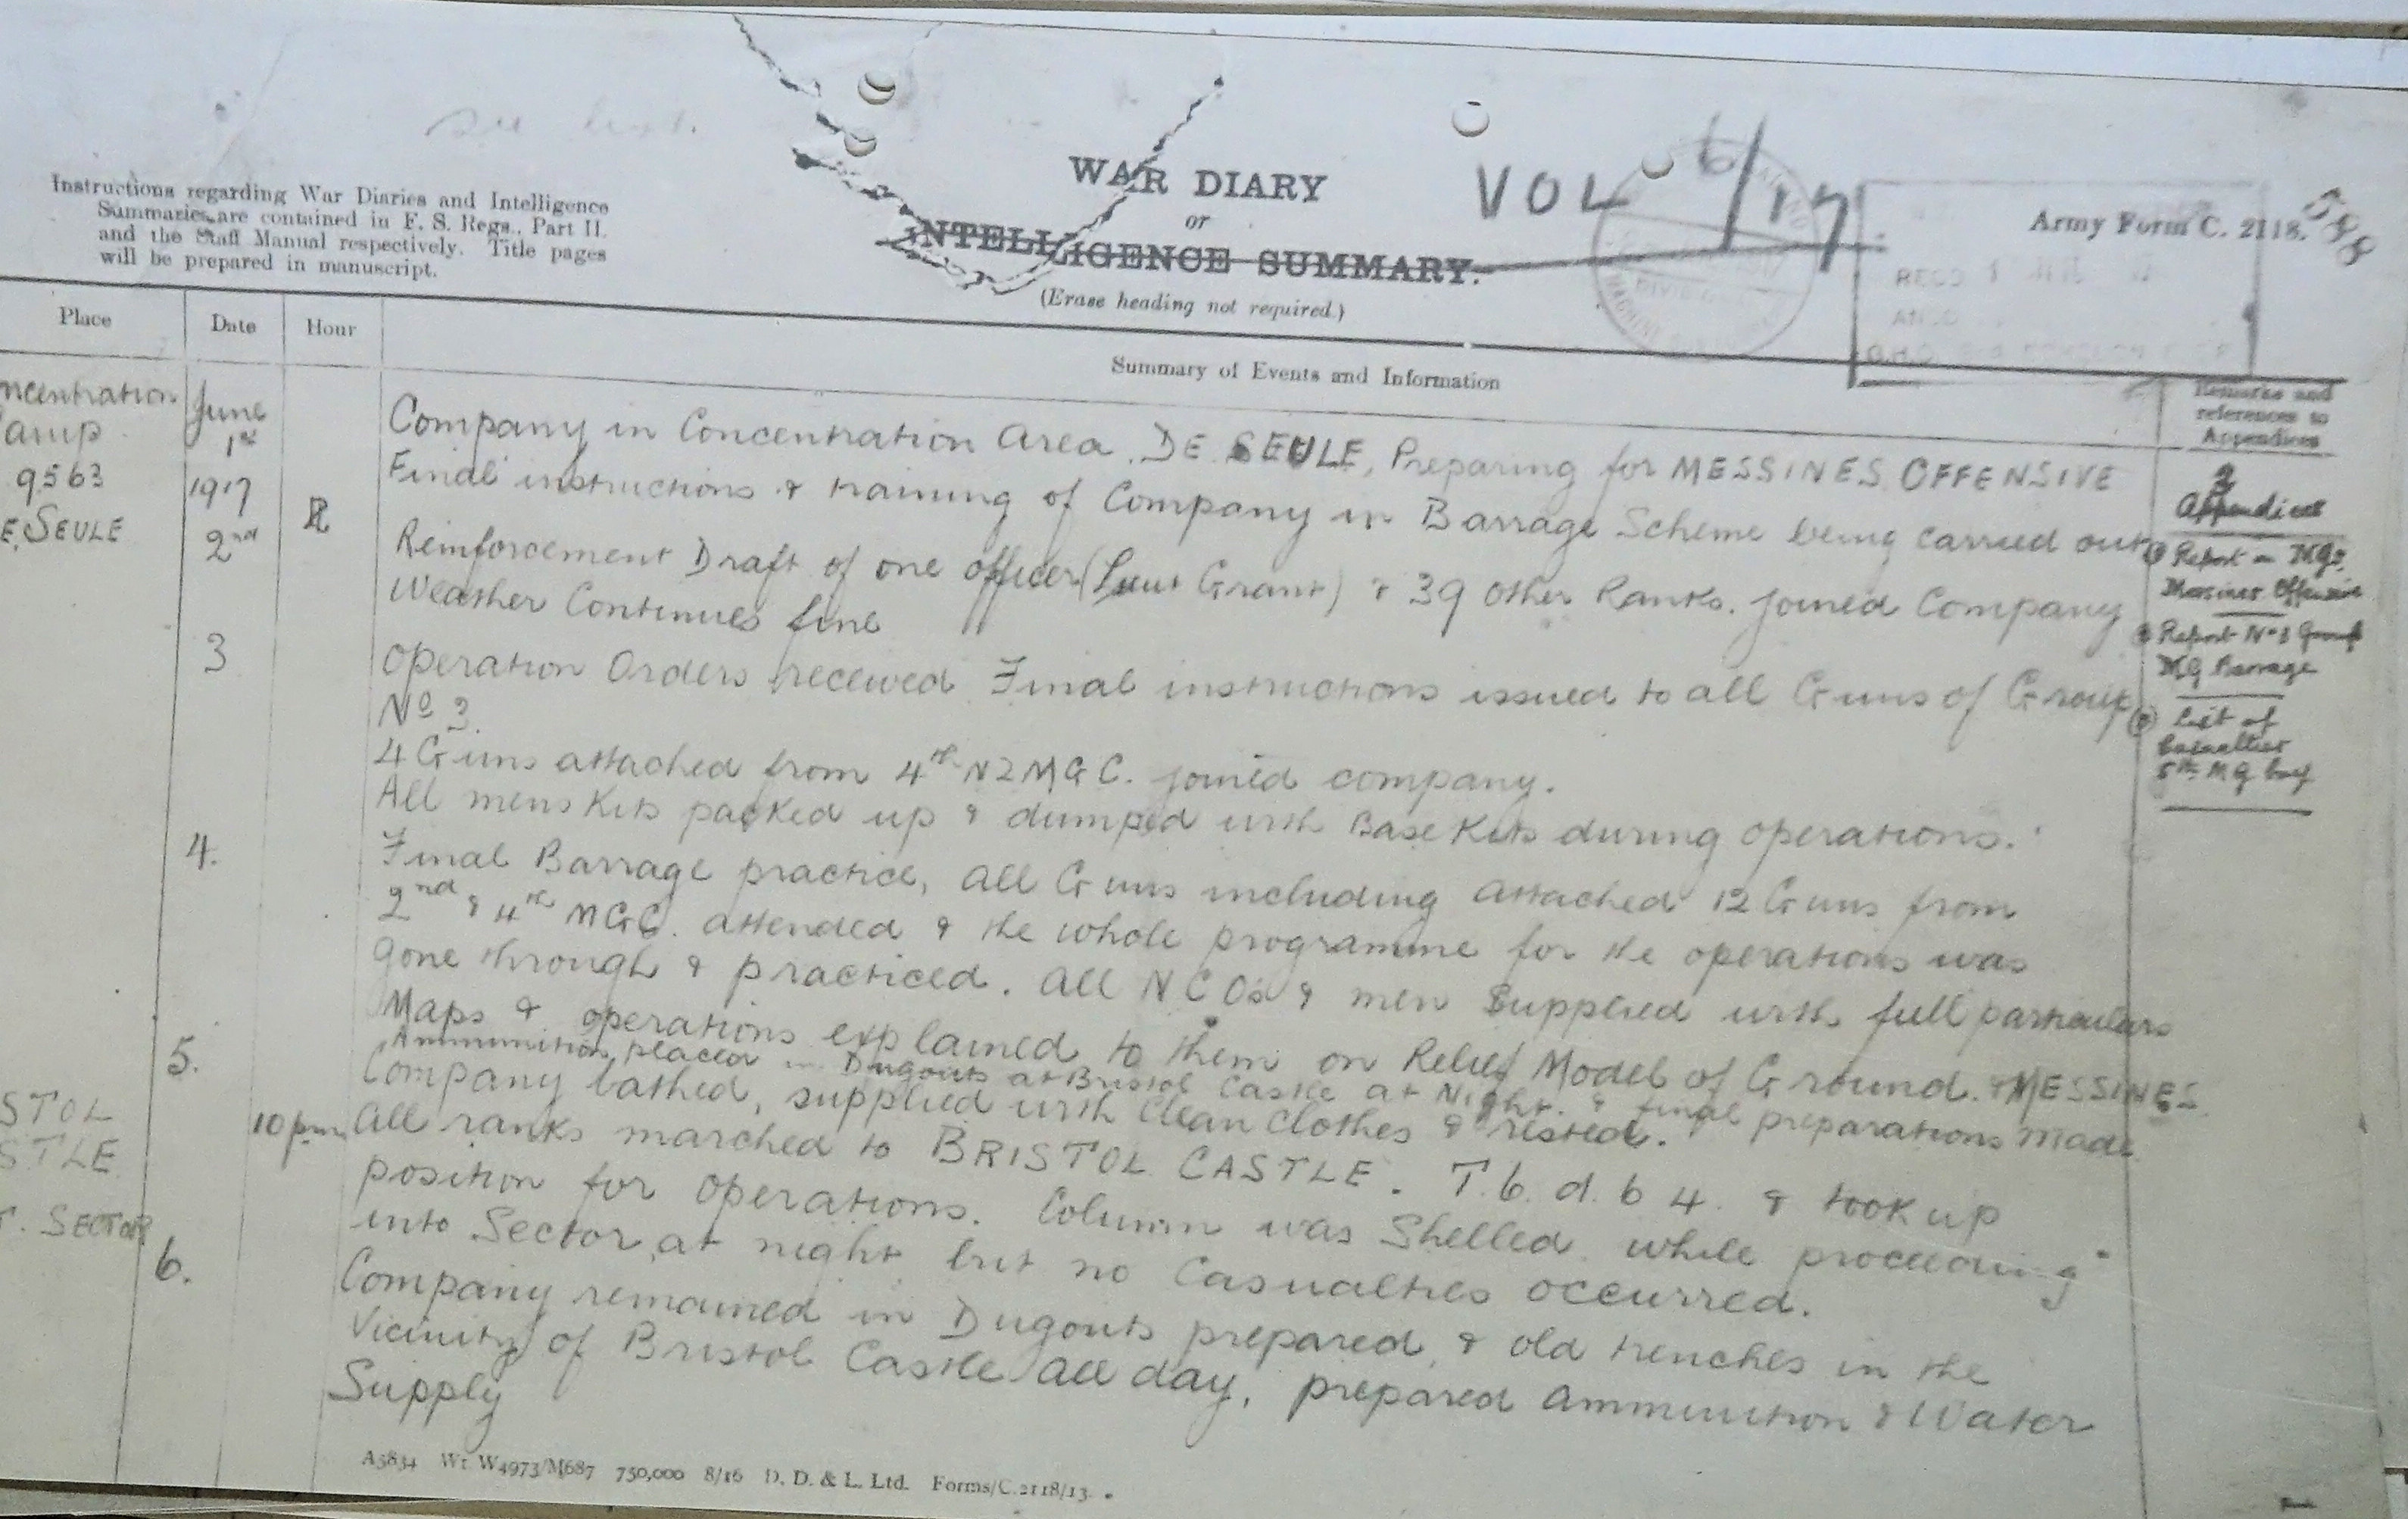 Instructions regarding War Diaries and Intelligence
Summaries are contained in F. S. Regs., Part II.
and the Staff Manual respectively. Title pages
will be prepared in manuscript.
WAR DIARY
or
INTELLIGENCE SUMMARY.
(Erase heading not required.)
VOL 6/17
Army Form C. 2118.
RECD
Place
Date
Hour
Summary of Events and Information
Remarks and
references to
Appendices
ncentration
amp
9563
E. SEULE
June
1st
1917
Company in Concentration Area. DE SEULE, Preparing for MESSINES OFFENSIVE
Final instructions & training of Company in Barrage Scheme being carried out
2nd
Reinforcement Draft of one officer (Lieut Grant) & 39 Other Ranks. joined Company
Weather Continues fine
3
Operation Orders received Final instructions issued to all Guns of Group
No 3.
4 Guns attached from 4th NZMGC. joined company.
All mens Kits packed up & dumped with Base Kits during operations.
4.
Final Barrage practice, All Guns including attached 12 Guns from
2nd & 4th MGC. attended & the whole programme for the operations was
gone through & practiced. All NCOs & men Supplied with full particulars
Maps & operations explained to them on Relief Model of Ground. & MESSINES.
Ammunition placed in Dugouts at Bristol Castle at Night. & final preparations made
5.
Company bathed, supplied with Clean Clothes & rested.
STOL
STLE
10 pm
All ranks marched to BRISTOL CASTLE. T.6.d.64. & took up
position for operations. Column was Shelled while proceeding
T. SECTOR
into Sector at night but no Casualties occurred.
6.
Company remained in Dugouts prepared & old trenches in the
Vicinity of Bristol Castle All day, prepared Ammunition & Water
Supply
3
Appendices
Report on MGs.
Messines Offensive
Report No 3 Group
MG Barrage
List of
Casualties
5th MG Coy
A5834 Wt W4973/M687 750,000 8/16 D. D. & L. Ltd. Forms/C.2118/13.